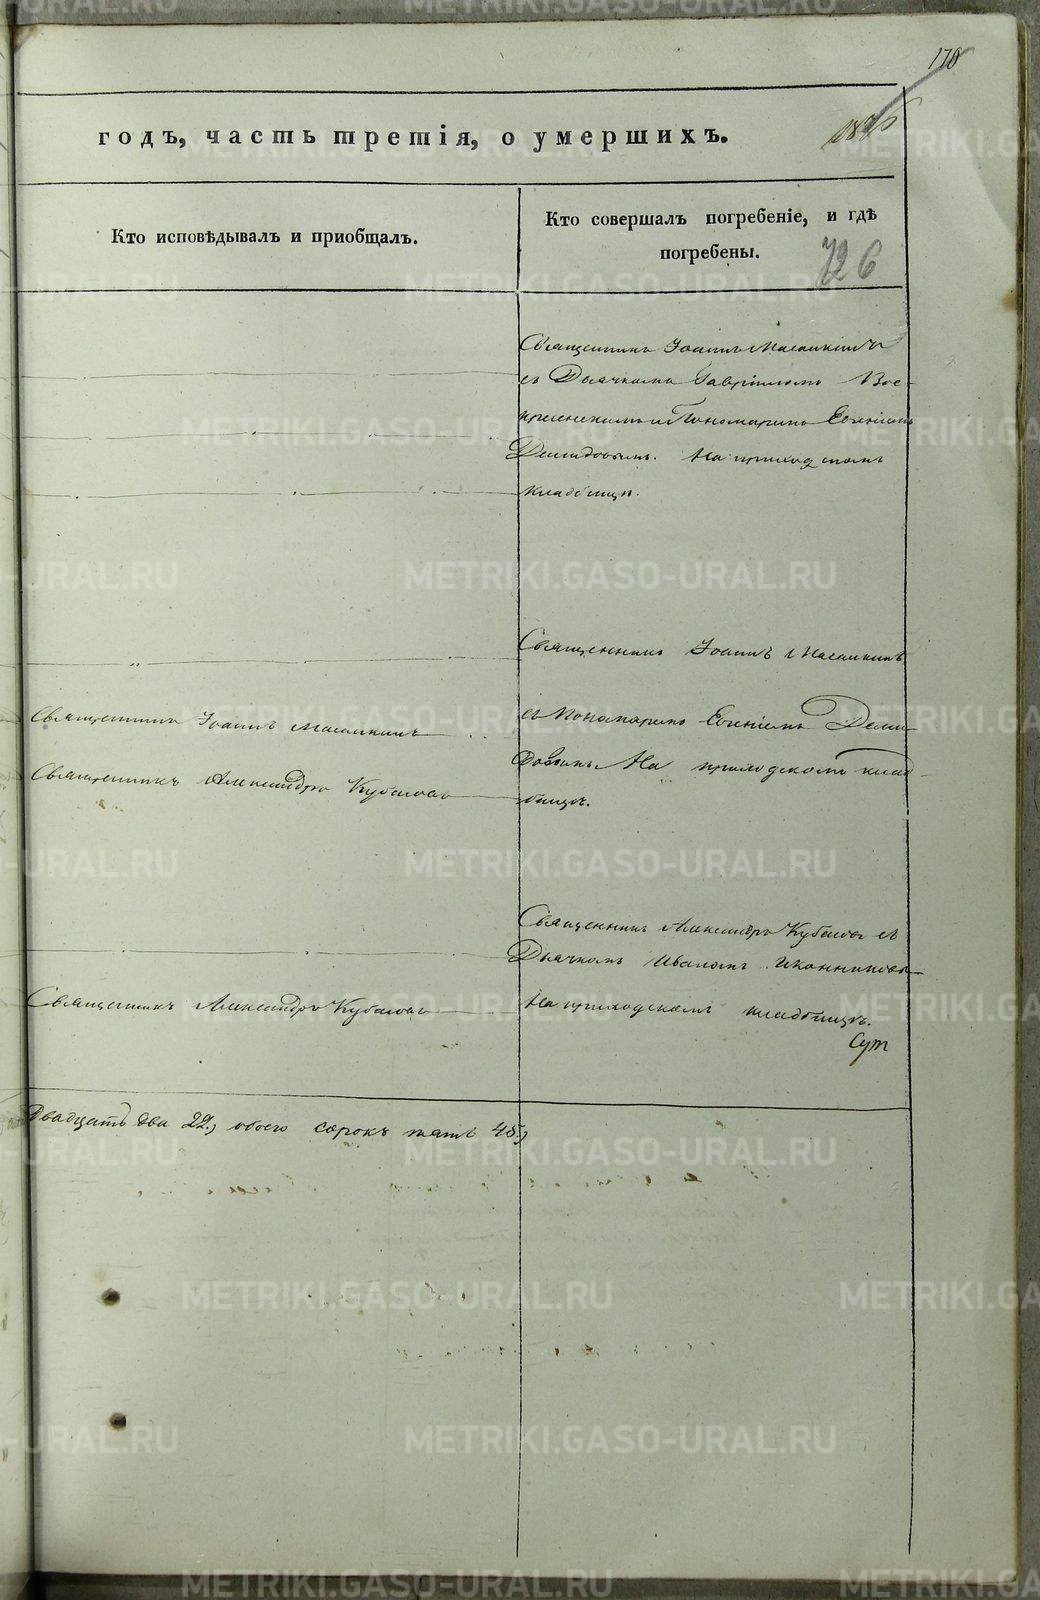 170
годъ, часть третія, о умершихъ.
Кто исповѣдывалъ и пріобщалъ.
Кто совершалъ погребеніе, и гдѣ
погребены.
726
Священникъ Іоаннъ
съ Дьячкомъ Гавріиломъ Вос-
и Пономаремъ Евгеніемъ
Демидовымъ. На приходскомъ
кладбищѣ.
Священникъ Іоаннъ
Священникъ Іоаннъ
съ Пономаремъ Евгеніемъ Деми-
Священникъ Александръ Кубасовъ
довымъ На приходскомъ клад-
бищѣ.
Священникъ Александръ Кубасовъ съ
Дьячкомъ Иваномъ Иконниковы
Священникъ Александръ Кубасовъ
На приходскомъ кладбищѣ.
Двадцать два 22, обоего сорокъ пять 45,
METRIKI.GASO-URAL.RU